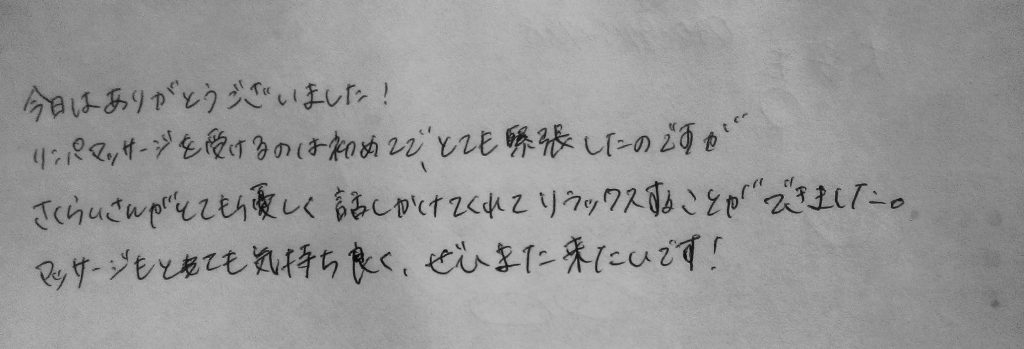 今日はありがとうございました!
リンパマッサージを受けるのは初めてで、とても緊張したのですが
さくらいさんがとても優しく話しかけてくれてリラックスすることができました。
マッサージもとても気持ち良く、ぜひまた来たいです!